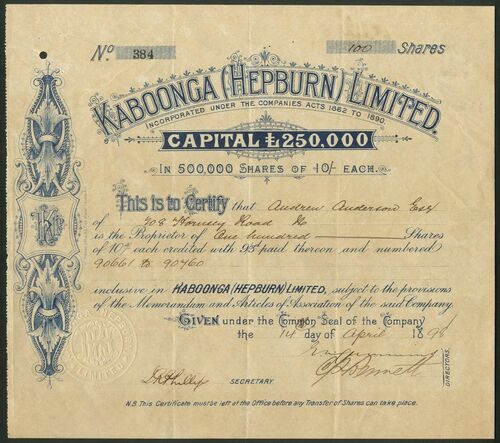 No. 384 100 Shares
KABOONGA (HEPBURN) LIMITED.
INCORPORATED UNDER THE COMPANIES ACTS 1862 TO 1890.
CAPITAL £250,000
IN 500,000 SHARES OF 10/- EACH.
This is to Certify that Andrew Anderson Esq
of 208 Hornsey Road N
is the Proprietor of One hundred Shares
of 10/- each credited with 9/3 paid thereon and numbered
90661 to 90760
inclusive in KABOONGA (HEPBURN) LIMITED, subject to the provisions
of the Memorandum and Articles of Association of the said Company.
GIVEN under the Common Seal of the Company
the 14th day of April 1898
DIRECTORS.
SECRETARY.
N.B. This Certificate must be left at the Office before any Transfer of Shares can take place.
LIMITED